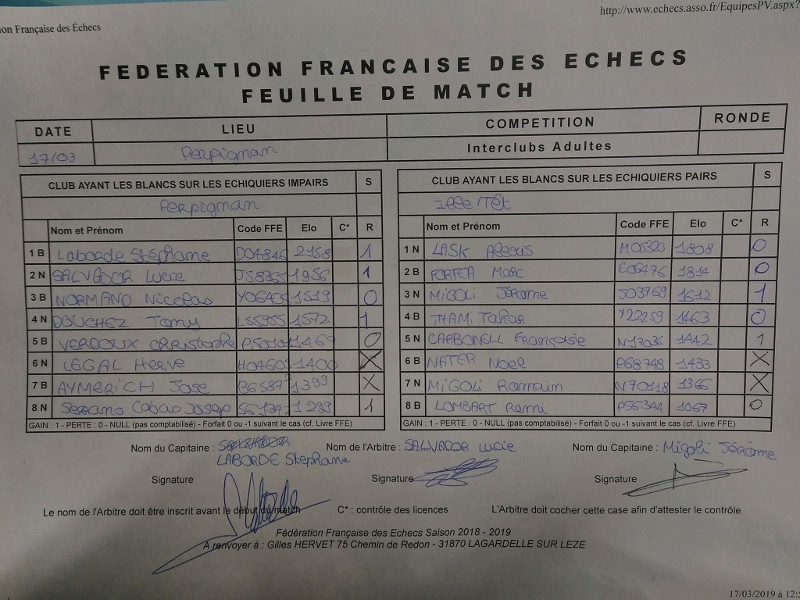 http://www.echecs.asso.fr/EquipesPV.aspx?
on Française des Échecs
FEDERATION FRANCAISE DES ECHECS
FEUILLE DE MATCH
DATE LIEU COMPETITION RONDE
17/03 Perpignan Interclubs Adultes
CLUB AYANT LES BLANCS SUR LES ECHIQUIERS IMPAIRS S CLUB AYANT LES BLANCS SUR LES ECHIQUIERS PAIRS S
Perpignan Ille/Têt
Nom et Prénom Code FFE Elo C* R Nom et Prénom Code FFE Elo C* R
1 B Laborde Stéphane 2158 1 1 N LASK Alexis 1808 0
2 N SALVADOR Lucie 1956 1 2 B PORTEA Marc 1814 0
3 B NORMAND Niccolas 1513 0 3 N MIGOLI Jérôme J03769 1512 1
4 N DOUCHEZ Tomy 1572 1 4 B THAMI Tahar Y22259 1463 0
5 B VERDOUX Christophe 0 5 N CARBONELL Françoise N17035 1442 1
6 N LEGAL Herve H04605 1400 X 6 B NATER Noel P68748 1433 X
7 B AYMERICH Jose 1399 X 7 N MIGOLI Romain N70118 1366 X
8 N Serrano Cobao Josep 1 8 B LOMBART Remi P56344 1067 0
GAIN : 1 - PERTE : 0 - NULL (pas comptabilisé) - Forfait 0 ou -1 suivant le cas (cf. Livre FFE) GAIN : 1 - PERTE : 0 - NULL (pas comptabilisé) - Forfait 0 ou -1 suivant le cas (cf. Livre FFE)
Nom du Capitaine : Nom de l'Arbitre : SALVADOR Lucie Nom du Capitaine : Migoli Jérôme
LABORDE Stephane
Signature Signature Signature
Le nom de l'Arbitre doit être inscrit avant le début du match C* : contrôle des licences L'Arbitre doit cocher cette case afin d'attester le contrôle
Fédération Française des Echecs Saison 2018 - 2019
A renvoyer à : Gilles HERVET 75 Chemin de Redon - 31870 LAGARDELLE SUR LEZE
17/03/2019 à 12: